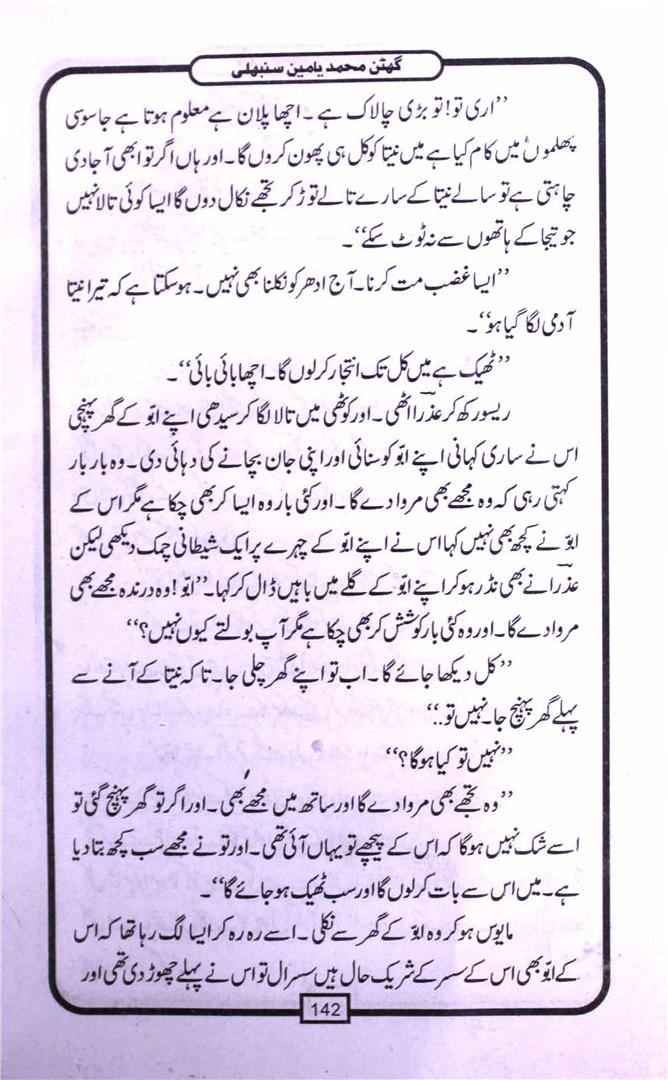 گھٹن محمد یامین سنبھلی
’’اری تو! تو بڑی چالاک ہے۔ اچھا پلان ہے معلوم ہوتا ہے جاسوسی
پھلموں میں کام کیا ہے میں نیتا کو کل ہی پھون کروں گا۔ اور ہاں اگر تو ابھی آجادی
چاہتی ہے تو سالے نیتا کے سارے تالے توڑ کر تجھے نکال دوں گا ایسا کوئی تالا نہیں
جو تیجا کے ہاتھوں سے نہ ٹوٹ سکے‘‘۔
’’ایسا غضب مت کرنا۔ آج ادھر کو نکلنا بھی نہیں۔ ہوسکتا ہے کہ تیرا نیتا
آدمی لگا گیا ہو‘‘۔
’’ٹھیک ہے میں کل تک انتجار کرلوں گا۔ اچھا بائی بائی‘‘۔
ریسور رکھ کر عذرا اٹھی۔ اور کوٹھی میں تالا لگا کر سیدھی اپنے ابّو کے گھر پہنچی
اس نے ساری کہانی اپنے ابّو کو سنائی اور اپنی جان بچانے کی دہائی دی۔ وہ بار بار
کہتی رہی کہ وہ مجھے بھی مروا دے گا۔ اور کئی بار وہ ایسا کر بھی چکا ہے مگر اس کے
ابّو نے کچھ بھی نہیں کہا اس نے اپنے ابّو کے چہرے پر ایک شیطانی چمک دیکھی لیکن
عذرا نے بھی نڈر ہوکر اپنے ابّو کے گلے میں باہیں ڈال کر کہا۔ ’’ابّو! وہ درندہ مجھے بھی
مروا دے گا۔ اور وہ کئی بار کوشش کر بھی چکا ہے مگر آپ بولتے کیوں نہیں؟‘‘
’’کل دیکھا جائے گا۔ اب تو اپنے گھر چلی جا۔ تاکہ نیتا کے آنے سے
پہلے گھر پہنچ جا۔ نہیں تو..‘‘
’’نہیں تو کیا ہوگا؟‘‘
’’وہ تجھے بھی مروا دے گا اور ساتھ میں مجھے بھی۔ اور اگر تو گھر پہنچ گئی تو
اسے شک نہیں ہوگا کہ اس کے پیچھے تو یہاں آئی تھی۔ اور تو نے مجھے سب کچھ بتا دیا
ہے۔ میں اس سے بات کرلوں گا اور سب ٹھیک ہوجائے گا‘‘۔
مایوس ہوکر وہ ابّو کے گھر سے نکلی۔ اسے رہ رہ کر ایسا لگ رہا تھا کہ اس
کے ابّو بھی اس کے سسر کے شریک حال ہیں سسرال تو اس نے پہلے چھوڑ دی تھی اور
142